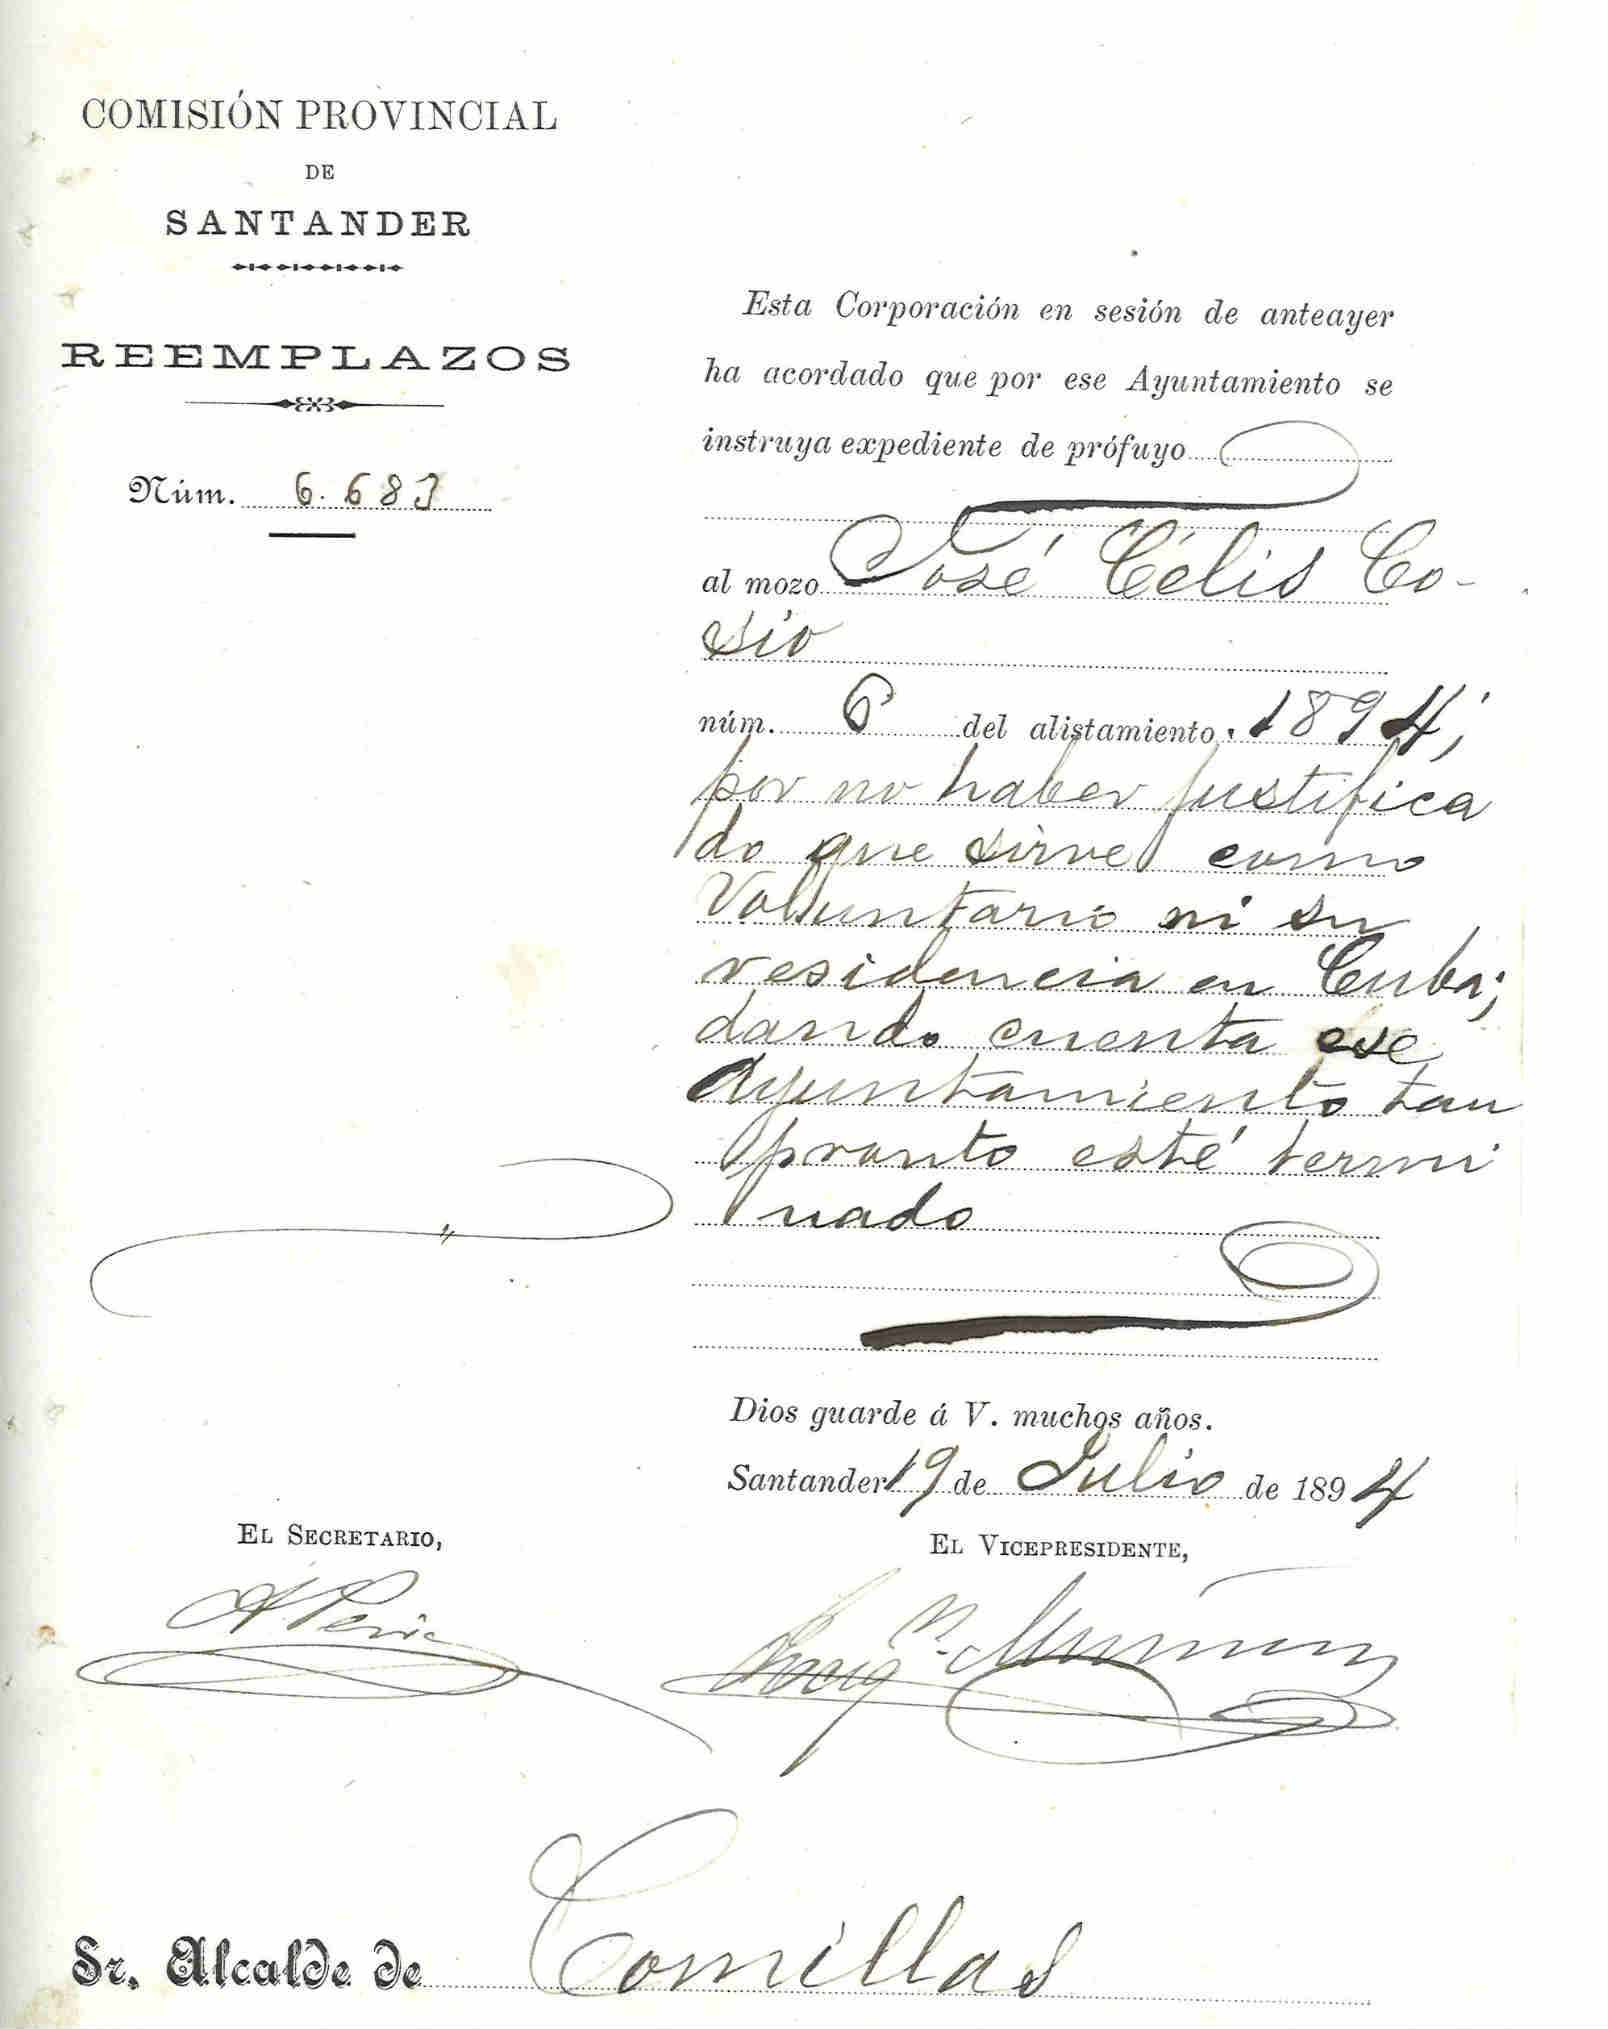 COMISIÓN PROVINCIAL
DE
SANTANDER
REEMPLAZOS
Núm. 6.683
Esta Corporación en sesión de anteayer
ha acordado que por ese Ayuntamiento se
instruya expediente de prófuyo
al mozo José Célis Co-
sío
núm. 6 del alistamiento. 1894;
por no haber justifica
do que sirve como
Voluntario ni su
residencia en Cuba;
dando cuenta ese
Ayuntamiento tan
pronto esté termi
nado
Dios guarde á V. muchos años.
Santander 19 de Julio de 1894
EL SECRETARIO,
EL VICEPRESIDENTE,
Sr. Alcalde de Comillas